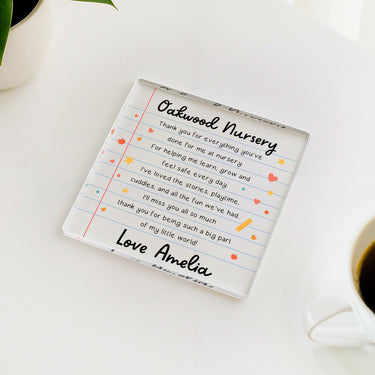 Oakwood Nursery
Thank you for everything you've
done for me at nursery.
For helping me learn, grow and
feel safe every day.
I've loved the stories, playtime,
cuddles, and all the fun we've had.
I'll miss you all so much
thank you for being such a big part
of my little world!
Love Amelia